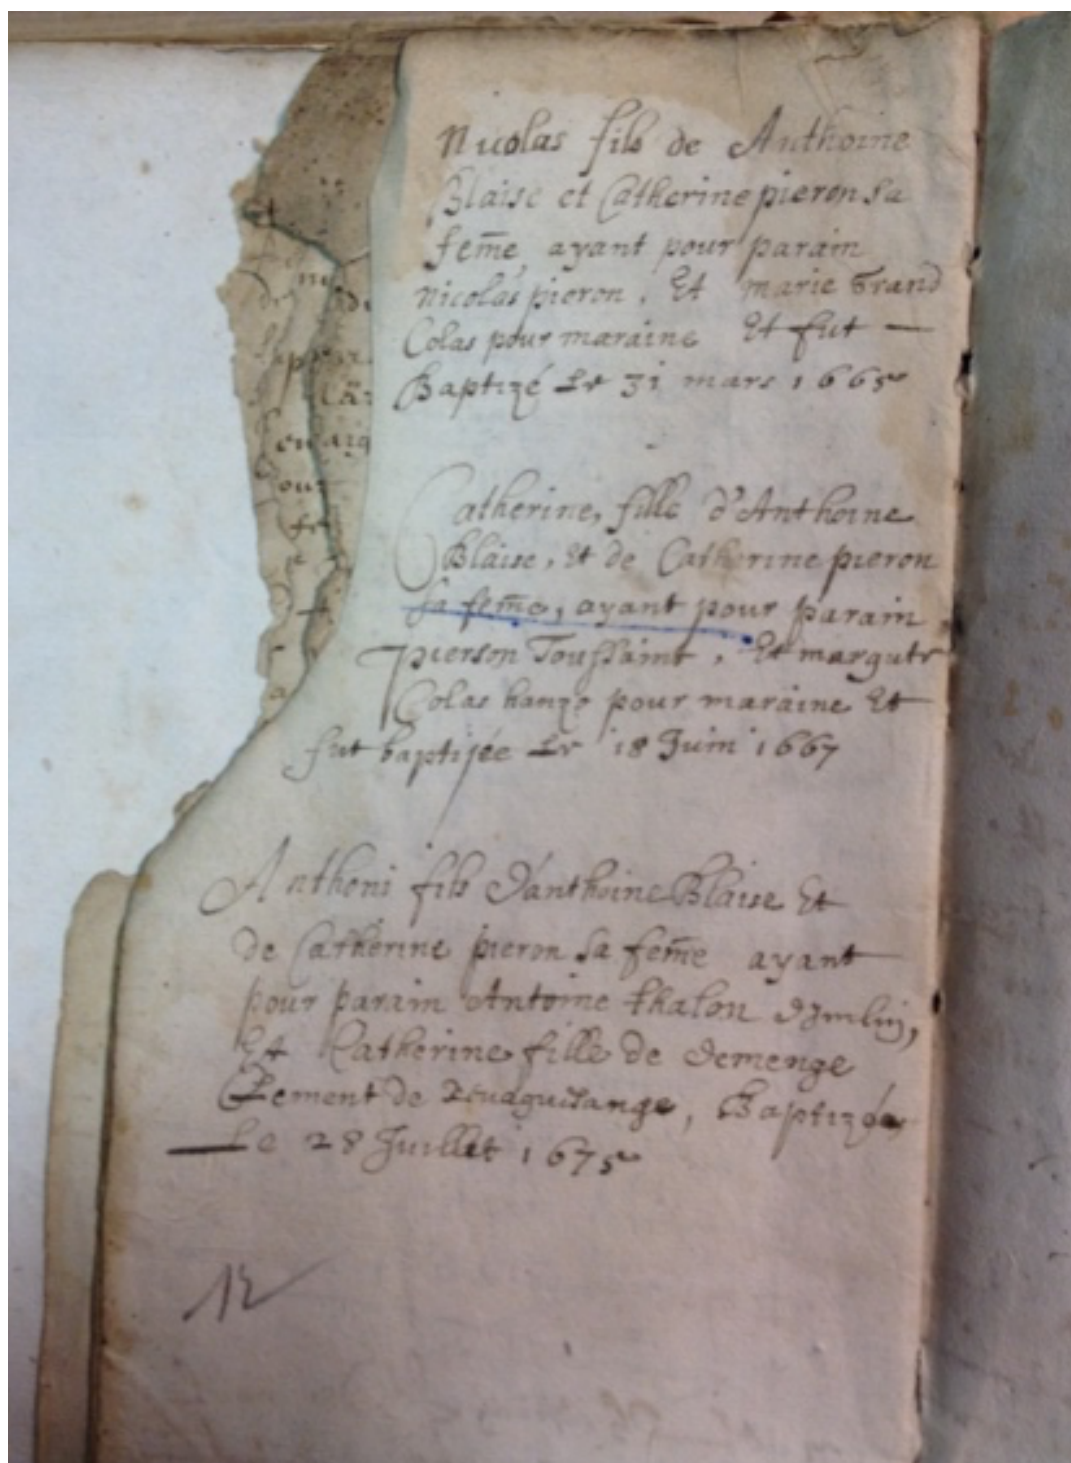 Nicolas fils de Anthoine
Blaise et Catherine pieron sa
fem̄e ayant pour parain
Nicolas pieron, Et marie Grand
Colas pour maraine Et fut —
Baptizé Le 31 mars 1665
Catherine, fille d'Anthoine
Blaise, Et de Catherine pieron
sa fem̄e, ayant pour parain
pierson Toussaint, Et margutte
Colas hanzo pour maraine Et
fut baptisée Le 18 Juin 1667
Anthoni fils d'anthoine Blaise Et
de Catherine pieron sa fem̄e ayant
pour parain Antoine thalon
Et Catherine fille de demenge
Clement de, Baptizée
— Le 28 Juillet 1675
12